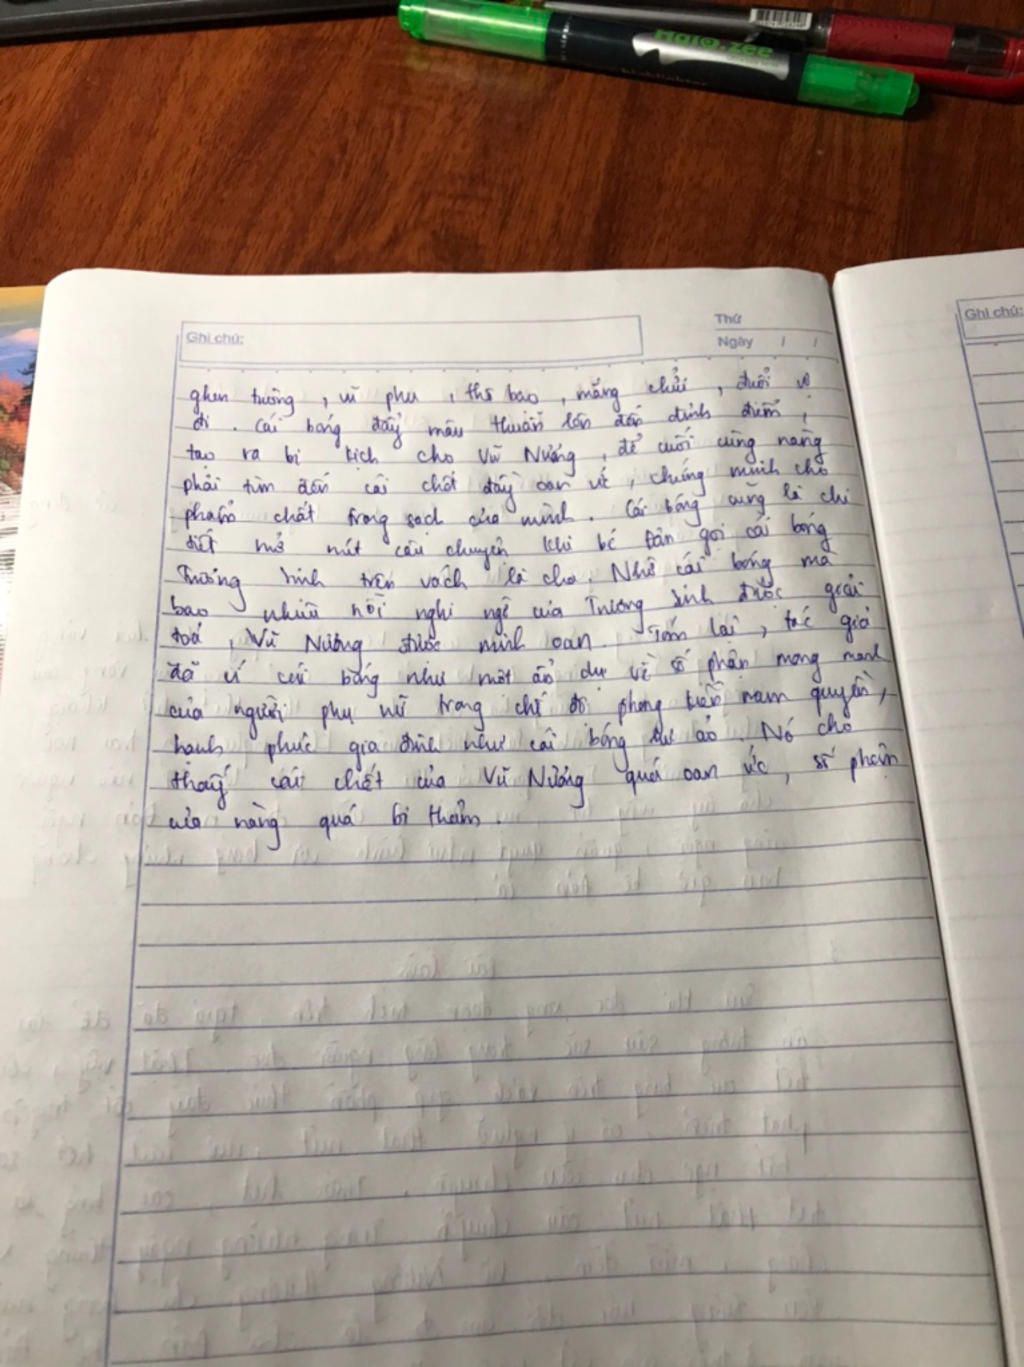 Halo.zee
highlighter
Ghi chú:
Thứ
Ngày / /
Ghi chú:
ghen tuông, vũ phu, thô bạo, mắng chửi, đuổi vợ
đi. Cái bóng đẩy mâu thuẫn lên đến đỉnh điểm,
tạo ra bi kịch cho Vũ Nương, để cuối cùng nàng
phải tìm đến cái chết đầy oan ức, chứng minh cho
phẩm chất trong sạch của mình. Cái bóng cũng là chi
tiết mở nút câu chuyện khi bé Đản gọi cái bóng
Trương Sinh trên vách là cha. Nhờ cái bóng mà
bao nhiêu nỗi nghi ngờ của Trương Sinh được giải
toả, Vũ Nương được minh oan. Tóm lại, tác giả
đã ví cái bóng như một ẩn dụ về số phận mong manh
của người phụ nữ trong chế độ phong kiến nam quyền,
hạnh phúc gia đình như cái bóng hư ảo. Nó cho
thấy cái chết của Vũ Nương quá oan ức, số phận
của nàng quá bi thảm.